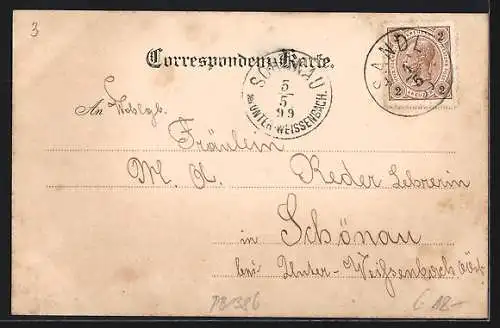 3
Correspondenz-Karte.
SANDL
2 2
SCHÖNAU
5
5
99
BEI UNTER-WEISSENBACH.
An Wohlgb.
Fräulein
M. A. Reder Lehrerin
in Schönau
bei Unter-Weißenbach